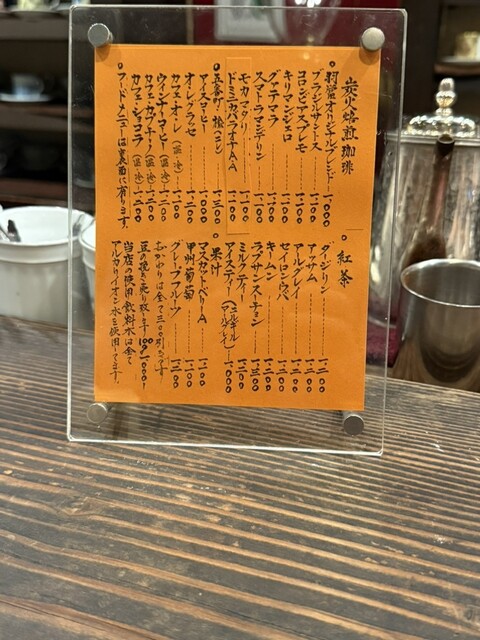 炭火焙煎珈琲
羽當オリジナルブレンド 一、〇〇〇
ブラジルサントス 一、一〇〇
コロンビアスプレモ 一、一〇〇
キリマンジェロ 一、一〇〇
グァテマラ 一、一〇〇
スマトラマンデリン 一、一〇〇
モカマタリ 一、一〇〇
ドミニカバラオナAA 一、一〇〇
アイスコーヒー 一、〇〇〇
オ・レグラッセ 一、一〇〇
カフェ・オ・レ(温・冷) 一、一〇〇
ウィンナーコーヒー(温・冷) 一、二〇〇
カフェ・カプチーノ(温・冷) 一、二〇〇
カフェ・ショコラ(温・冷) 一、二〇〇
フードメニューは裏面に有ります。
紅茶
ダージリン 一、二〇〇
アッサム 一、二〇〇
アールグレイ 一、二〇〇
セイロンウバ 一、二〇〇
キームン 一、二〇〇
ラプサンスーチョン 一、三〇〇
ミルクティー 一、二〇〇
アイスティー
果汁
マスカットベリーA 一、一〇〇
甲州葡萄 一、一〇〇
グレープフルーツ 一、三〇〇
おかわりは全て三〇〇引きです
豆の挽き売り致します
当店の使用飲料水は全て
アルカリイオン水を使用してます。